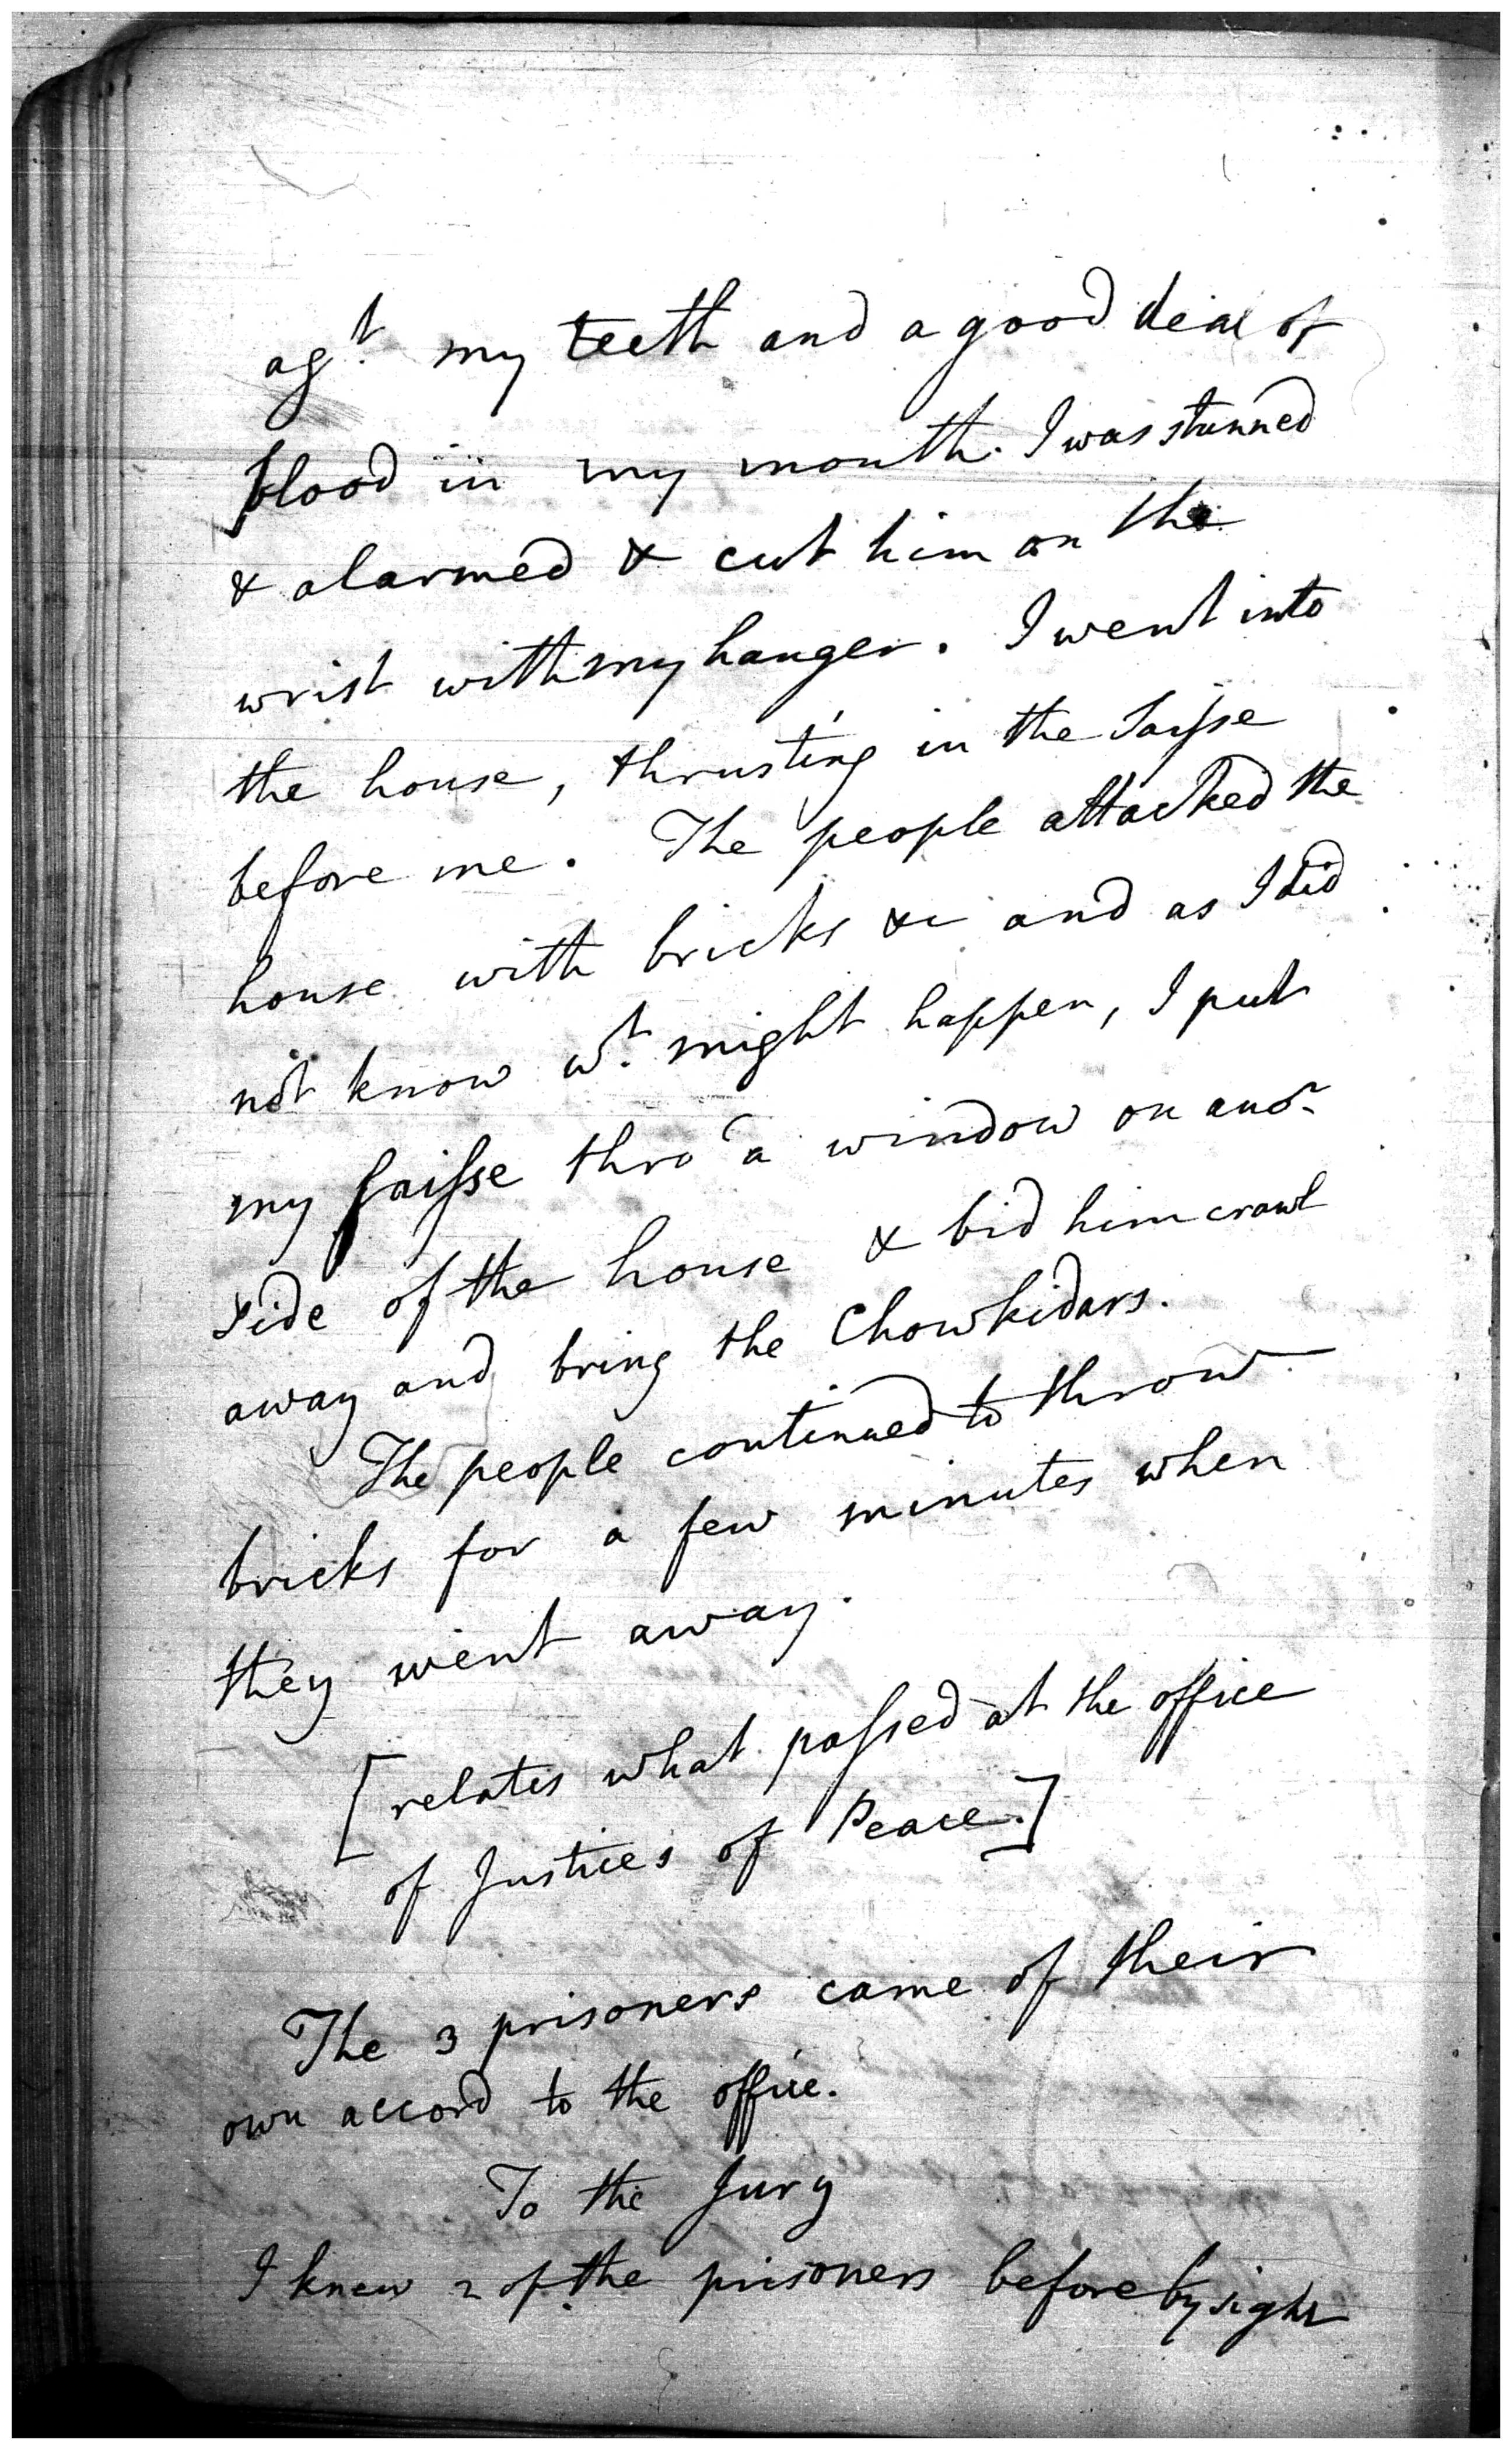 agt. my teeth and a good deal of
blood in my mouth. I was stunned
& alarmed & cut him on the
wrist with my hanger. I went into
the house, thrusting in the Saisse
before me. The people attacked the
house with bricks &c and as I did
not know wt. might happen, I put
my Saisse thro' a window on ano.
side of the house & bid him crawl
away and bring the Chowkidars.
The people continued to throw
bricks for a few minutes when
they went away.
[relates what passed at the office
of Justices of Peace.]
The 3 prisoners came of their
own accord to the office.
To the Jury
I knew 2 of the prisoners before by sight